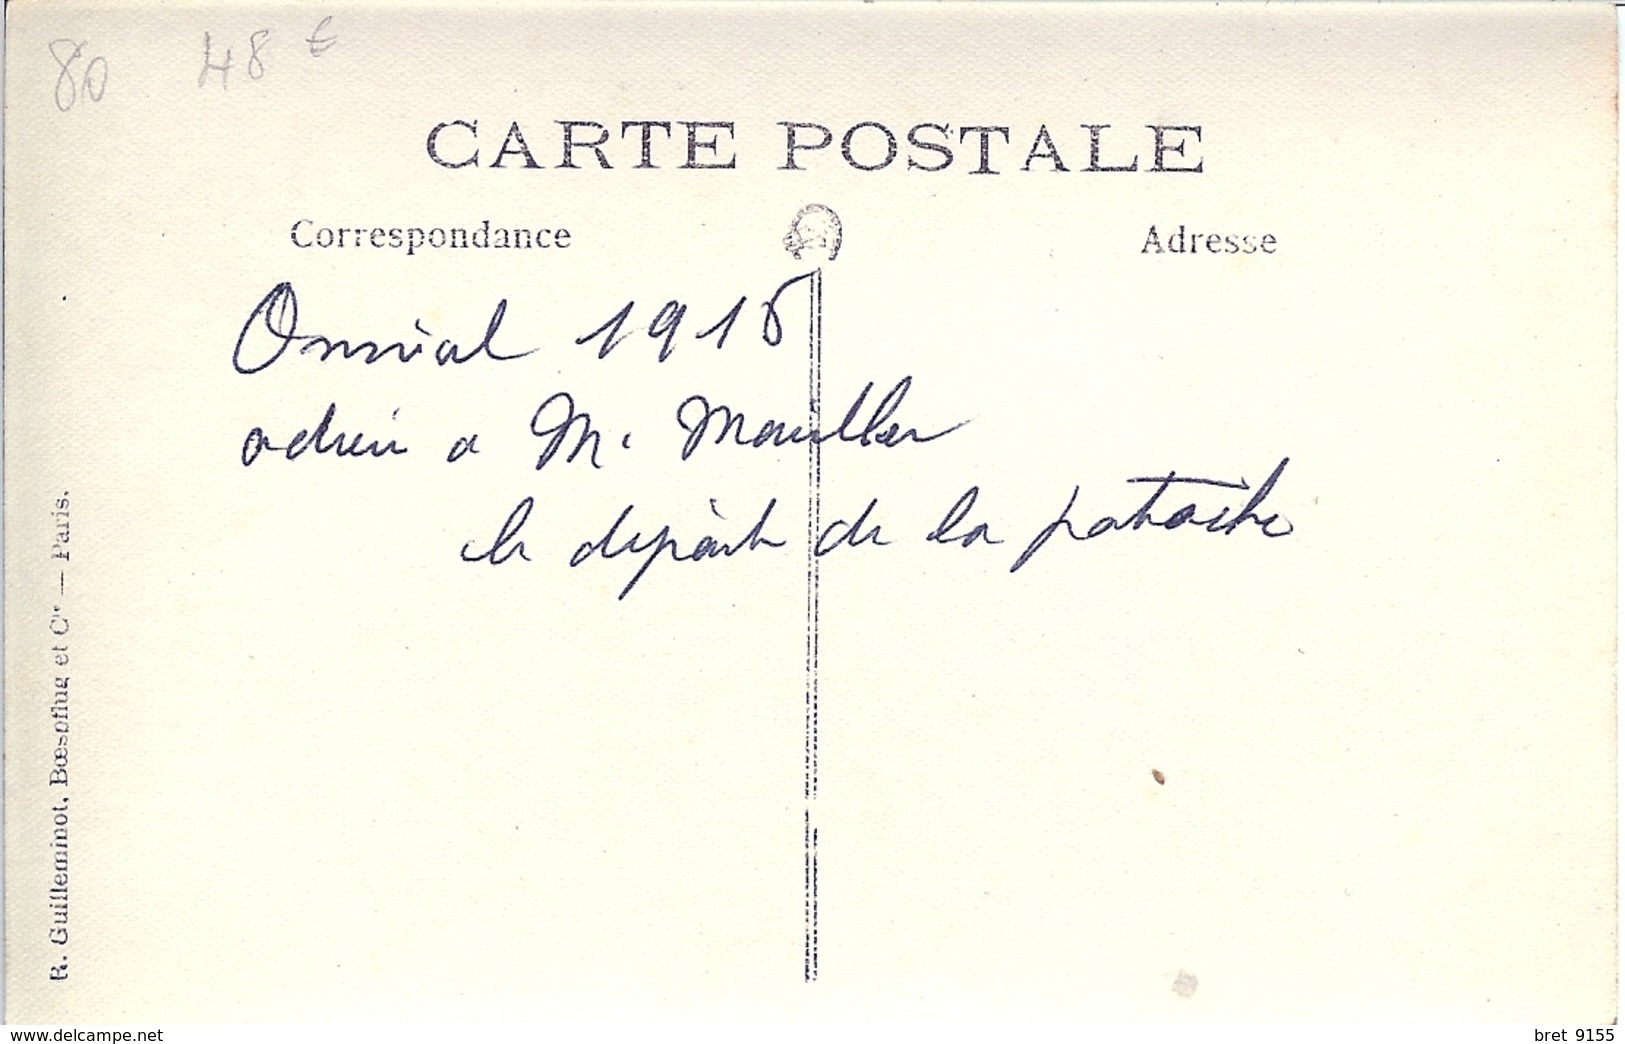 80 48 €
CARTE POSTALE
Correspondance
Adresse
Onival 1915
adieu a M. Maller
le départ de la patache
R. Guilleminot, Bœspflug et Cie — Paris.
www.delcampe.net
bret 9155